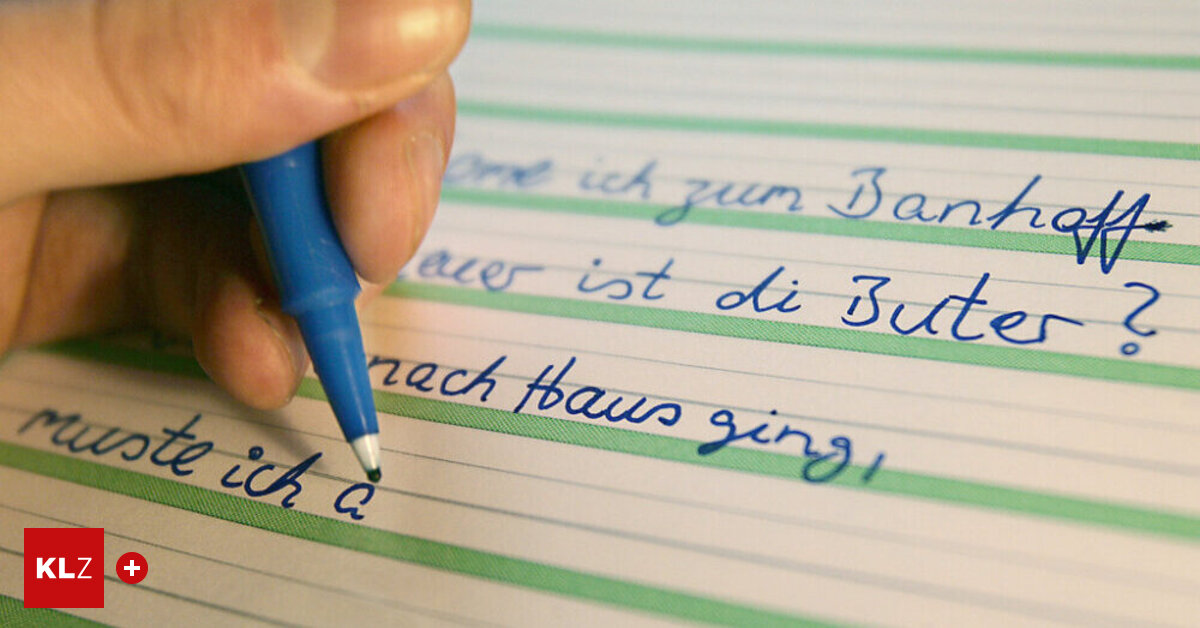 ome ich zum Banhoff
auer ist di Buter?
nach Haus ging,
muste ich a
KLZ +